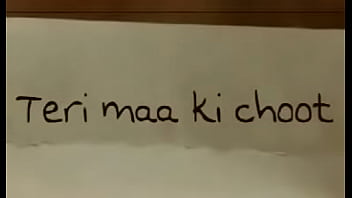 Teri maa ki choot